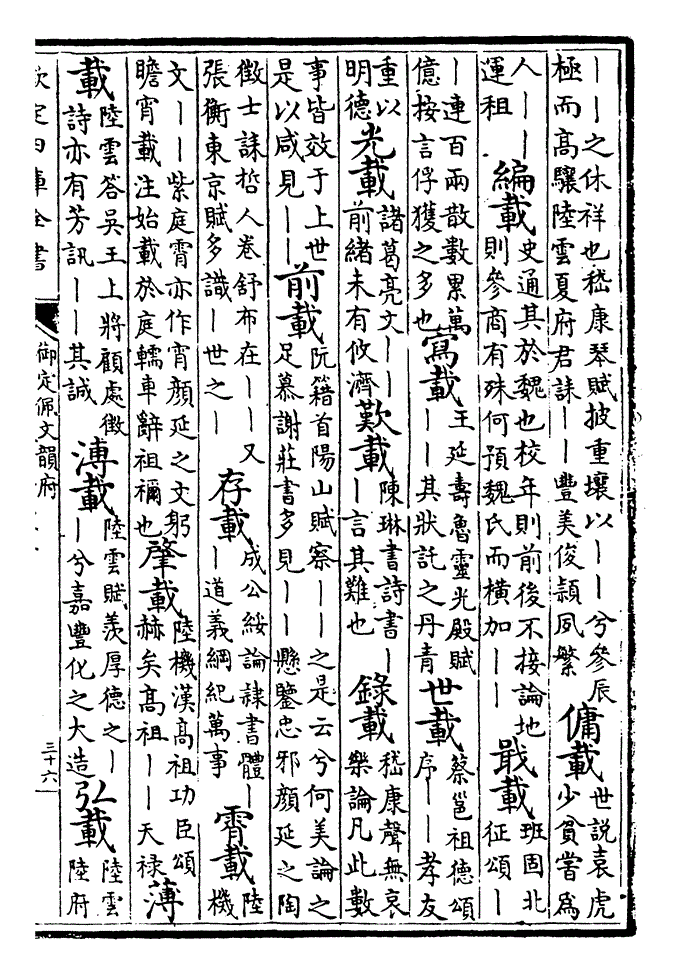 ——之休祥也嵇康琴賦披重壤以——兮參辰
極而高驤陸雲夏府君誄——豐美俊穎夙繁
傭載
世說袁虎
少貧嘗為
人——
運租
編載
史通其於魏也校年則前後不接論地
則參商有殊何預魏氏而橫加——
戢載
班固北
征頌—
—連百兩散數累萬
億按言俘獲之多也
寫載
王延壽魯靈光殿賦
——其狀託之丹青
世載
蔡邕祖德頌
序——孝友
重以
明德
光載
諸葛亮文——
前緒未有攸濟
歎載
陳琳書詩書—
—言其難也
錄載
嵇康聲無哀
樂論凡此數
事皆效于上世
是以咸見——
前載
阮籍首陽山賦察——之是云兮何美論之
足慕謝莊書多見——懸鑒忠邪顏延之陶
徵士誄哲人卷舒布在——又
張衡東京賦多識—世之—
存載
成公綏論隸書體—
—道義綱紀萬事
霄載
陸
機
文——紫庭霄亦作宵顏延之文躬
瞻宵載注始載於庭轜車辭祖禰也
肇載
陸機漢高祖功臣頌
赫矣高祖——天祿
薄
載
陸雲答吳王上將顧處徵
詩亦有芳訊——其誠
溥載
陸雲賦羨厚德之—
—兮嘉豐化之大造
弘載
陸雲
陸府
欽定四庫全書
御定佩文韻府
三十六